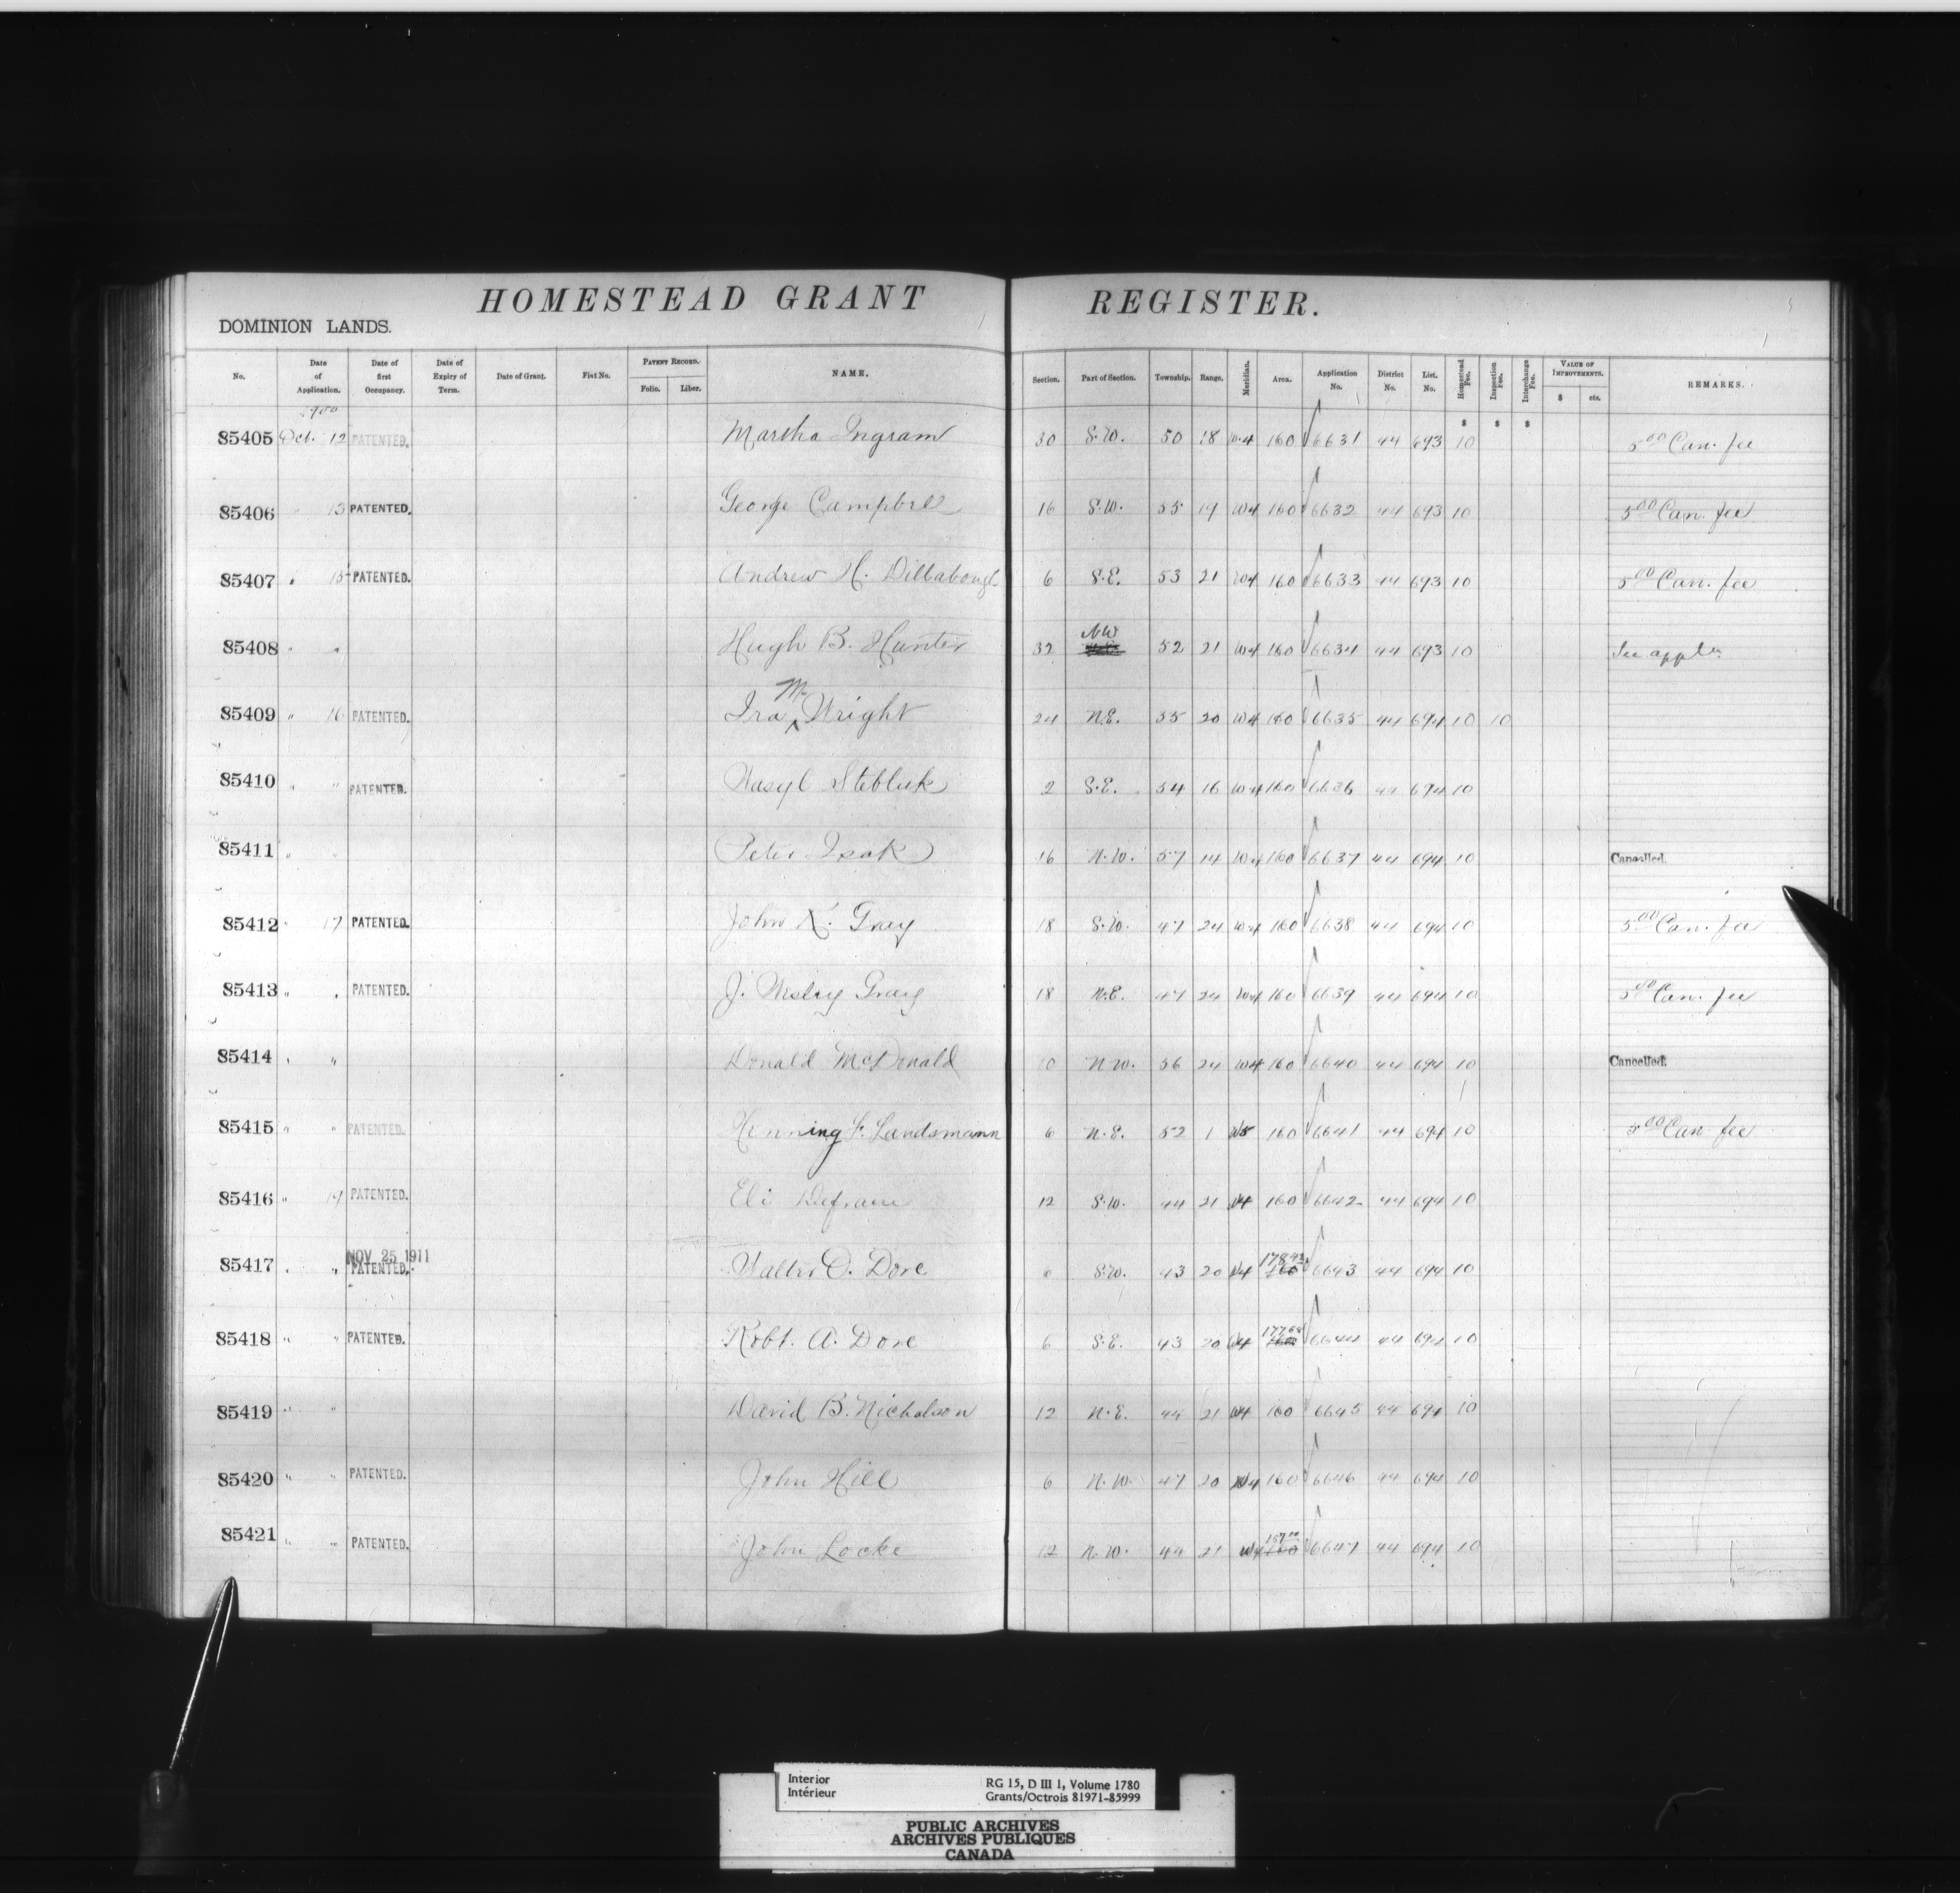 HOMESTEAD GRANT REGISTER.
DOMINION LANDS.
No. Date of Application. Date of first Occupancy. Date of Expiry of Term. Date of Grant. Fiat No. PATENT RECORD. Folio. Liber. NAME. Section. Part of Section. Township. Range. Meridian. Area. Application No. District No. List. No. Homestead Fee. Inspection Fee. Interchange Fee. VALUE OF IMPROVEMENTS. $ cts. REMARKS.
1900 $ $ $
85405 Oct. 12 PATENTED. Martha Ingram 30 S.W. 50 18 W4 160 6631 44 693 10 5 00 Can. fee
85406 " 13 PATENTED. George Campbell 16 S.W. 55 19 W4 160 6632 44 693 10 5 00 Can. fee
85407 " 15 PATENTED. Andrew H. Dillabough 6 S.E. 53 21 W4 160 6633 44 693 10 5 00 Can. fee
85408 " " Hugh B. Hunter 32 NW 52 21 W4 160 6634 44 693 10 See appln.
85409 " 16 PATENTED. Ira M. Wright 24 N.E. 55 20 W4 160 6635 44 694 10 10
85410 " " PATENTED. Wasyl Stebluk 2 S.E. 54 16 W4 160 6636 44 694 10
85411 " " Peter Isak 16 N.W. 57 14 W4 160 6637 44 694 10 Cancelled.
85412 " 17 PATENTED. John K. Gray 18 S.W. 47 24 W4 160 6638 44 694 10 5 00 Can. fee
85413 " " PATENTED. J. Wesley Gray 18 N.E. 47 24 W4 160 6639 44 694 10 5 00 Can. fee
85414 " " Donald McDonald 10 N.W. 56 24 W4 160 6640 44 694 10 Cancelled.
85415 " " PATENTED. Henning F. Landsmann 6 N.E. 52 1 W5 160 6641 44 694 10 5 00 Can. fee
85416 " 19 PATENTED. Eli 12 S.W. 44 21 W4 160 6642 44 694 10
85417 " " NOV 25 1911 PATENTED. Walter O. Dore 6 S.W. 43 20 W4 178 160 6643 44 694 10
85418 " " PATENTED. Robt. A. Dore 6 S.E. 43 20 W4 177 160 6644 44 694 10
85419 " " David B. Nicholson 12 N.E. 44 21 W4 160 6645 44 694 10
85420 " " PATENTED. John Hill 6 N.W. 47 20 W4 160 6646 44 694 10
85421 " " PATENTED. John Locke 12 N.W. 44 21 W4 157 160 6647 44 694 10
Interior RG 15, D III 1, Volume 1780
Intérieur Grants/Octrois 81971-85999
PUBLIC ARCHIVES
ARCHIVES PUBLIQUES
CANADA